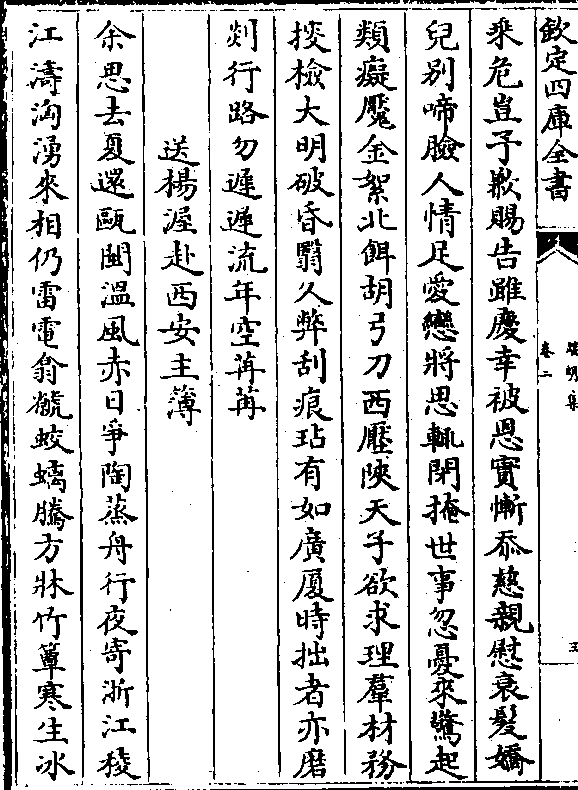 欽定四庫全書
端明集
卷二
五
乘危豈予歉賜告雖慶幸被恩實慚忝慈親慰衰髮嬌
兒别啼臉人情足愛戀將思輒閉掩世事忽憂來驚起
類癡魘金絮北餌胡弓刀西壓陜天子欲求理羣材務
搜檢大明破昏翳久弊刮痕玷有如廣厦時拙者亦磨
剡行路勿遲遲流年空苒苒
送楊渥赴西安主簿
余思去夏還甌閩溫風赤日爭陶蒸舟行夜寄浙江稜
江濤洶湧來相仍雷電翕虩蛟螭騰方牀竹簟寒生冰